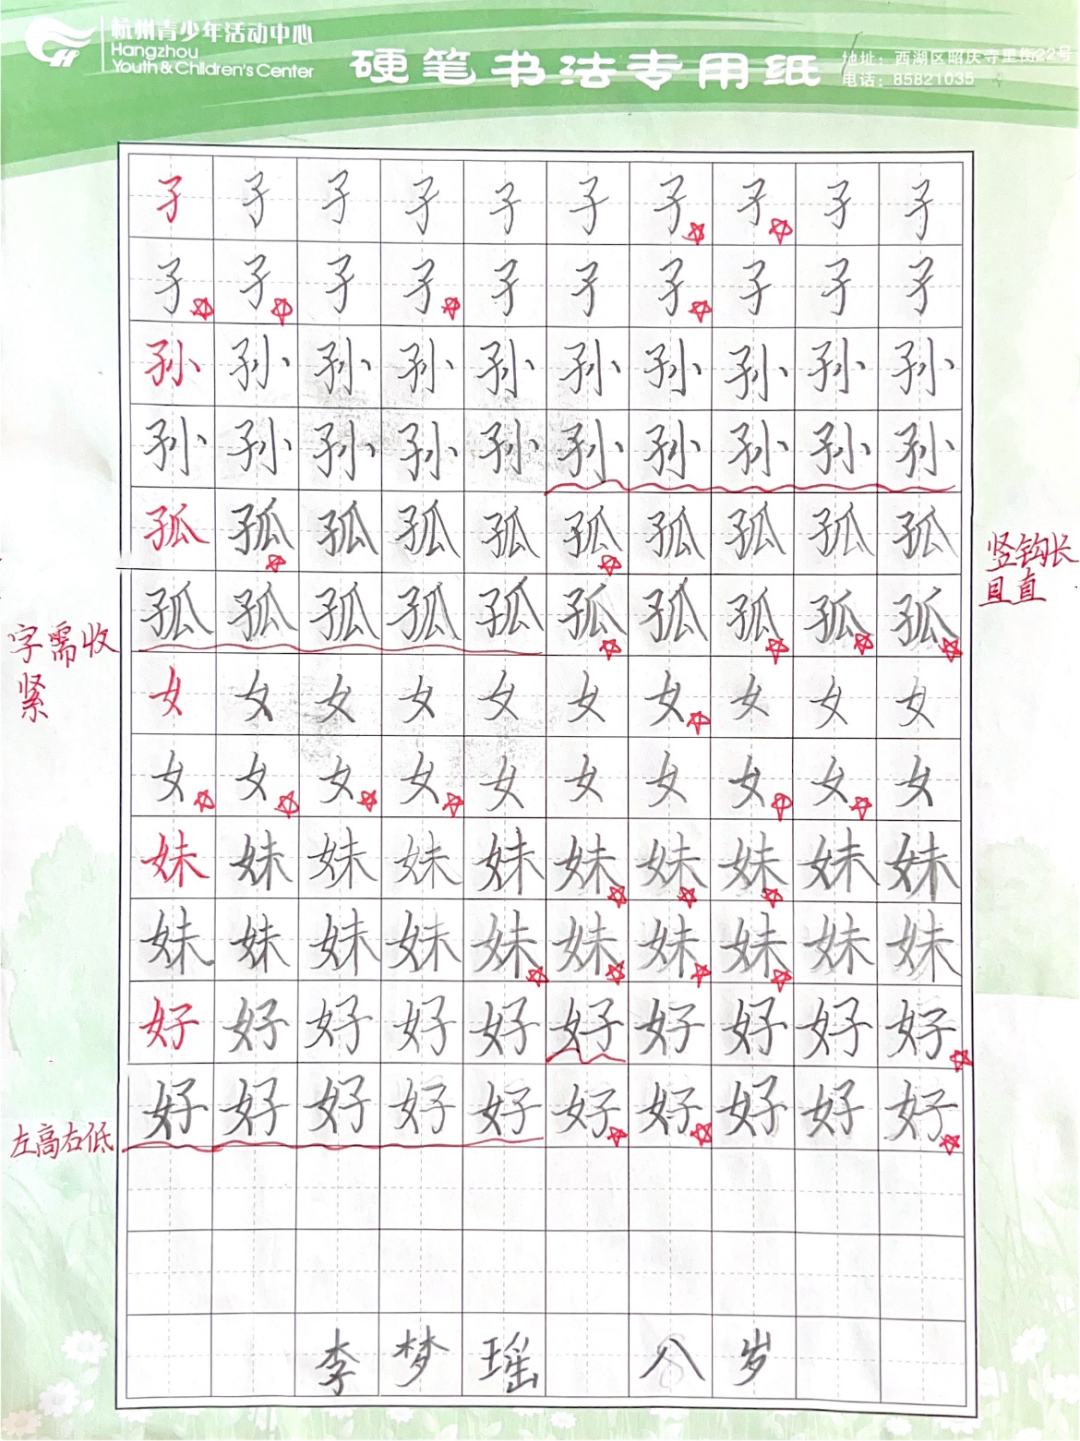 杭州青少年活动中心
Hangzhou
Youth & Children's Center
硬笔书法专用纸
地址：西湖区昭庆寺里街22号
电话：85821035
孑 孑 孑 孑 孑 孑 孑 孑 孑 孑
孑 孑 孑 孑 孑 孑 孑 孑 孑 孑
孙 孙 孙 孙 孙 孙 孙 孙 孙 孙
孙 孙 孙 孙 孙 孙 孙 孙 孙 孙
孤 孤 孤 孤 孤 孤 孤 孤 孤 孤
竖钩长
且直
孤 孤 孤 孤 孤 孤 孤 孤 孤 孤
字需收
紧
女 女 女 女 女 女 女 女 女 女
女 女 女 女 女 女 女 女 女 女
妹 妹 妹 妹 妹 妹 妹 妹 妹 妹
妹 妹 妹 妹 妹 妹 妹 妹 妹 妹
好 好 好 好 好 好 好 好 好 好
好 好 好 好 好 好 好 好 好 好
左高右低
李梦瑶 八岁